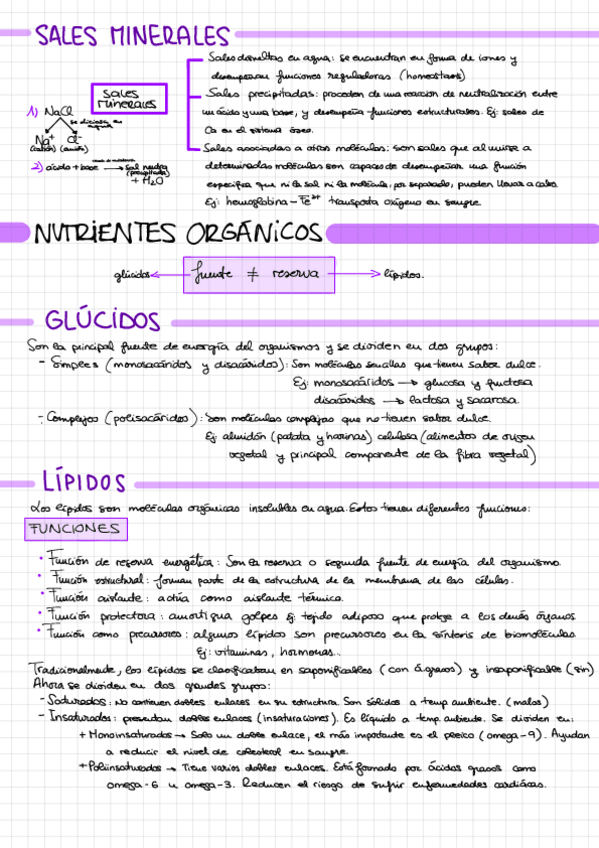 SALES MINERALES
Sales disueltas en agua: se encuentran en forma de iones y
desempeñan funciones reguladoras (homeostasis)
Sales precipitadas: proceden de una reacción de neutralización entre
un ácido y una base, y desempeña funciones estructurales. Ej: sales de
Ca en el sistema óseo.
Sales asociadas a otras moléculas: son sales que al unirse a
determinadas moléculas son capaces de desempeñar una función
específica que ni la sal ni la molécula, por separado, pueden llevar a cabo.
Ej: hemoglobina - Fe²⁺ transporta oxígeno en sangre.
sales
minerales
1) NaCl
se disocia en
agua
Na⁺ Cl⁻
(catión) (anión)
2) ácido + base → sal neutra
(precipitada)
+ H₂O
NUTRIENTES ORGÁNICOS
glúcidos ← fuente ≠ reserva → lípidos.
GLÚCIDOS
Son la principal fuente de energía del organismos y se dividen en dos grupos:
- Simples (monosacáridos y disacáridos): Son moléculas sencillas que tienen sabor dulce.
Ej: monosacáridos → glucosa y fructosa
disacáridos → lactosa y sacarosa.
- Complejos (polisacáridos): Son moléculas complejas que no tienen sabor dulce.
Ej: almidón (patata y harinas) celulosa (alimentos de origen
vegetal y principal componente de la fibra vegetal)
LÍPIDOS
Los lípidos son moléculas orgánicas insolubles en agua. Estos tienen diferentes funciones:
FUNCIONES
• Función de reserva energética: Son la reserva o segunda fuente de energía del organismo.
• Función estructural: forman parte de la estructura de la membrana de las células.
• Función aislante: actúa como aislante térmico.
• Función protectora: amortigua golpes Ej: tejido adiposo que protege a los demás órganos.
• Función como precursores: algunos lípidos son precursores en la síntesis de biomoléculas.
Ej: vitaminas, hormonas...
Tradicionalmente, los lípidos se clasificaban en saponificables (con á.grasos) y insaponificable (sin)
Ahora se dividen en dos grandes grupos:
- Saturados: No contienen dobles enlaces en su estructura. Son sólidos a temp ambiente. (malos)
- Insaturados: presentan dobles enlaces (insaturaciones). Es líquido a temp. ambiente. Se dividen en:
+ Monoinsaturados → Solo un doble enlace, el más importante es el (omega-9). Ayudan
a reducir el nivel de colesterol en sangre.
+ Poliinsaturados → Tiene varios dobles enlaces. Está formado por ácidos grasos como
omega-6 u omega-3. Reducen el riesgo de sufrir enfermedades cardíacas.